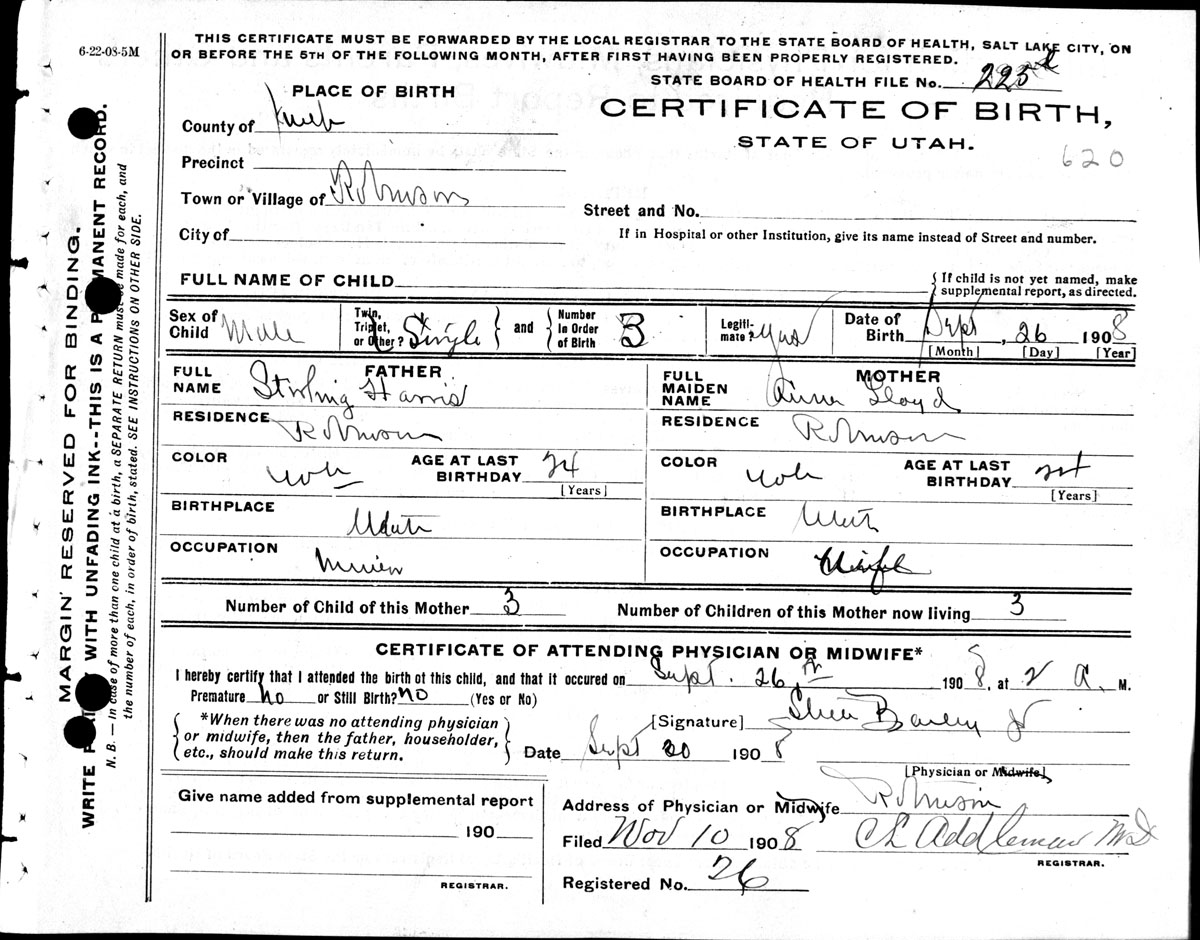 6-22-08-5M
THIS CERTIFICATE MUST BE FORWARDED BY THE LOCAL REGISTRAR TO THE STATE BOARD OF HEALTH, SALT LAKE CITY, ON
OR BEFORE THE 5TH OF THE FOLLOWING MONTH, AFTER FIRST HAVING BEEN PROPERLY REGISTERED.
STATE BOARD OF HEALTH FILE No.
PLACE OF BIRTH
CERTIFICATE OF BIRTH,
STATE OF UTAH.
620
County of
Precinct
Town or Village of Robinson
Street and No.
City of
If in Hospital or other Institution, give its name instead of Street and number.
FULL NAME OF CHILD
If child is not yet named, make
supplemental report, as directed.
Sex of Child Male
Twin, Triplet, or Other? Single
and
Number In Order of Birth 3
Legitimate? Yes
Date of Birth Sept, 26 1908
[Month] [Day] [Year]
FATHER
FULL NAME Stirling Harris
MOTHER
FULL MAIDEN NAME Lloyd
RESIDENCE Robinson
RESIDENCE Robinson
COLOR
AGE AT LAST BIRTHDAY 24
[Years]
COLOR
AGE AT LAST BIRTHDAY 24
[Years]
BIRTHPLACE Utah
BIRTHPLACE Utah
OCCUPATION
OCCUPATION
Number of Child of this Mother 3
Number of Children of this Mother now living 3
CERTIFICATE OF ATTENDING PHYSICIAN OR MIDWIFE*
I hereby certify that I attended the birth of this child, and that it occured on Sept. 26th 1908, at 2 A. M.
Premature No or Still Birth? no (Yes or No)
*When there was no attending physician
or midwife, then the father, householder,
etc., should make this return.
[Signature]
Date Sept 1908
[Physician or Midwife]
Give name added from supplemental report
190
REGISTRAR.
Address of Physician or Midwife Robinson
Filed Nov 10 1908 Addleman MD
REGISTRAR.
Registered No. 26
MARGIN RESERVED FOR BINDING.
WRITE WITH UNFADING INK--THIS IS A RECORD.
N. B. — In case of more than one child at a birth, a SEPARATE RETURN must be made for each, and
the number of each, in order of birth, stated. SEE INSTRUCTIONS ON OTHER SIDE.